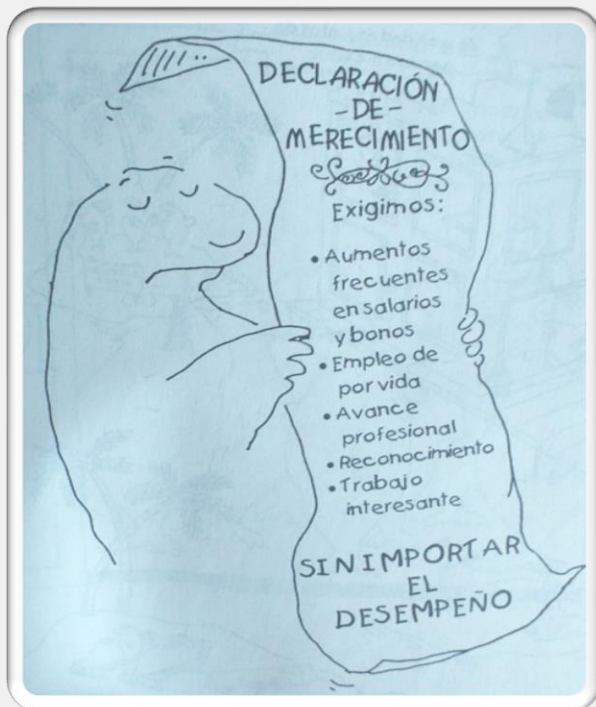 DECLARACIÓN
-DE-
MERECIMIENTO
Exigimos:
• Aumentos
frecuentes
en salarios
y bonos
• Empleo de
por vida
• Avance
profesional
• Reconocimiento
• Trabajo
interesante
SIN IMPORTAR
EL
DESEMPEÑO